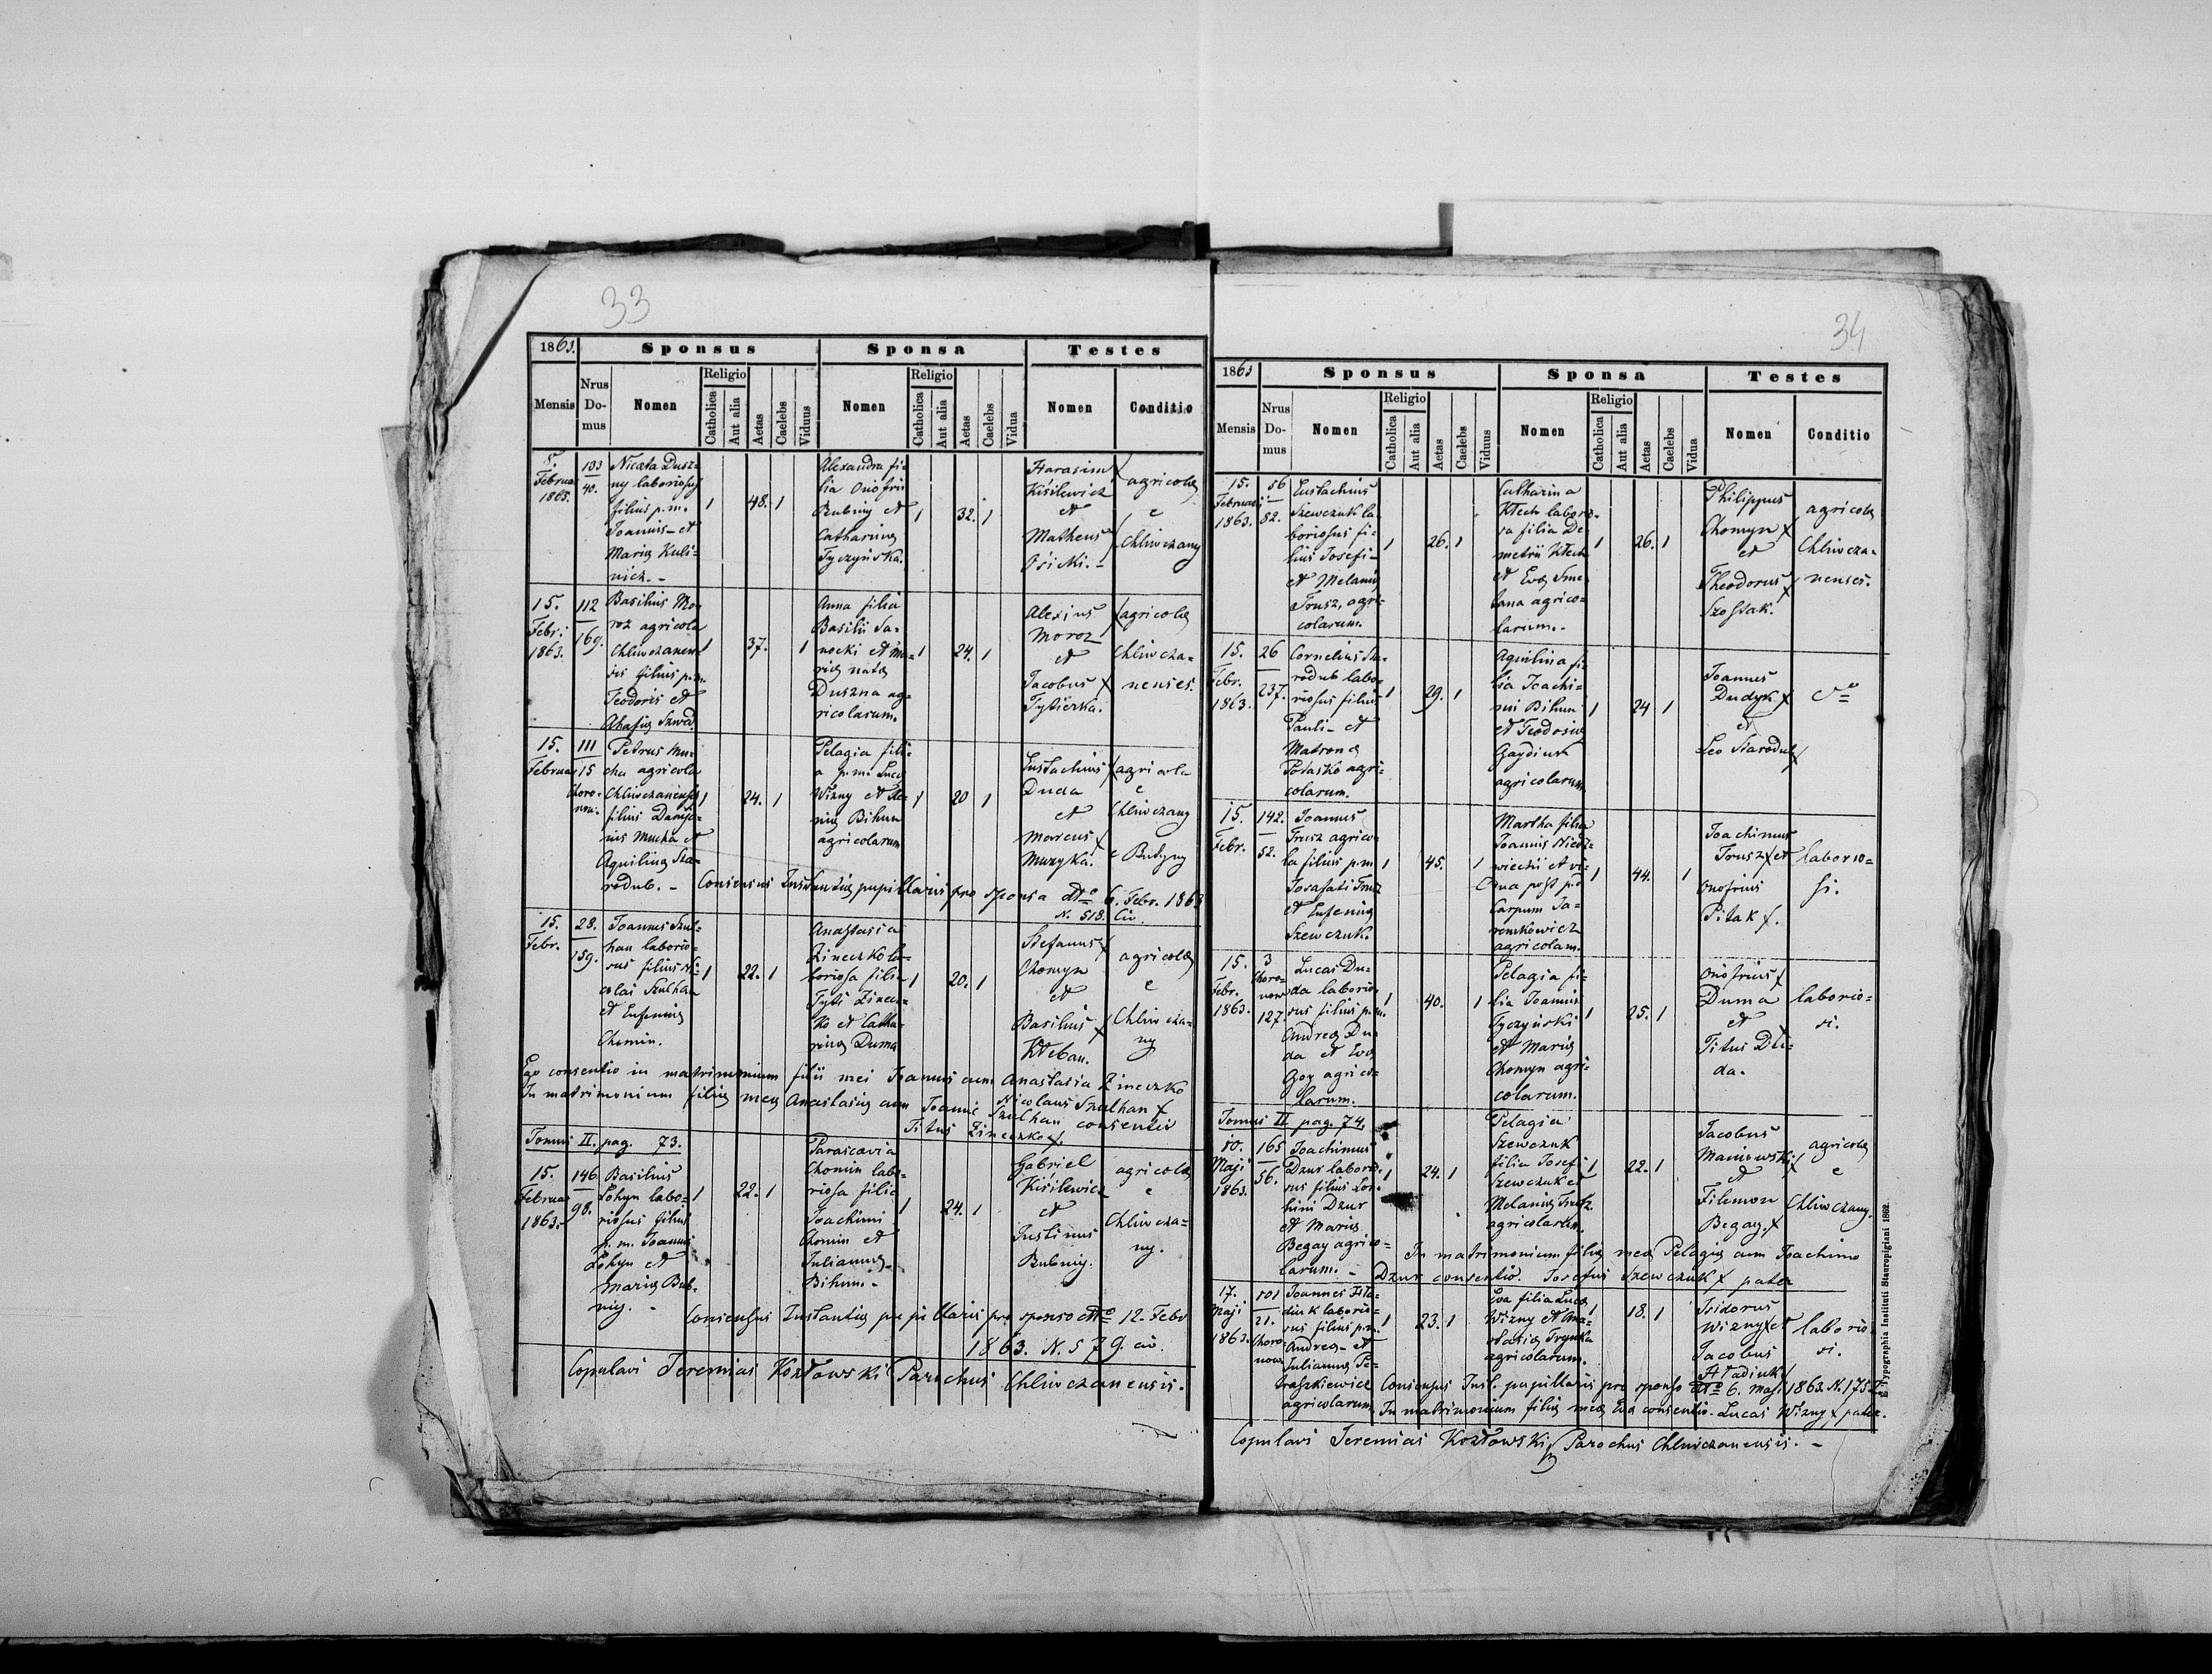 33
1863.
Sponsus
Sponsa
Testes
Mensis
Nrus Do-mus
Nomen
Religio
Catholica
Aut alia
Aetas
Caelebs
Viduus
Nomen
Religio
Catholica
Aut alia
Aetas
Caelebs
Vidua
Nomen
Conditio
8.
Februar
1863.
103
40.
Nicæta Dusz=
ny laboriosus
filius p.m.
Joannis et
Mariæ Kuli=
nicz. -
1
48. 1
Alexandra fi=
lia Onofrii
Bubniy et
Catharinæ
Tyczyńska.
1
32. 1
Harasim
Kisilewicz
et
Matheus
Osicki. -
agricolæ
e
Chliwczany
15.
Febr.
1863.
112
169.
Basilius Mo=
roz agricola
Chliwczanen=
sis filius p.m.
Teodoris et
Ahafiæ Szwed.
1
37. 1
Anna filia
Basilii Sa=
nocki et Ma=
riæ natæ
Duszna ag=
ricolarum.
1
24. 1
Alexius
Moroz
et
Jacobus
agricolæ
Chliwcza=
nenses.
15.
Februar
111
15
Choro=
now.
Petrus Mu=
cha agricola
Chliwczanensis
filius
Mucha et
Aquilinæ Sta=
rodub. -
1
24. 1
Pelagia fili=
a p.m. Lucæ
Wizny et
Bihun
agricolarum
1
20 1
Eustachius
Duda
et
Marcus
Muzyka.
agricola
e
Chliwczany
e Butyny
Consensus Instantiæ pupillaris pro sponsa dto 6. Febr. 1863
N. 518. Civ.
15.
Febr.
28.
159.
Joannes Szul=
han laborio=
sus filius Ni=
colai Szulhan
et Eufeniæ
Chomin.
1
22. 1
Anastasia
Zineczko la=
boriosa filia
Tyti Zinecz=
ko et Catha=
rinæ Duma
1
20. 1
Stefanus
Chomyn
et
Basilius
Kłeban.
agricolæ
e
Chliwcza=
ny
Ego consentio in matrimonium filii mei Joannis cum Anastasia Zineczko
Nicolaus Szulhan
In matrimonium filiæ meæ Anastasiæ cum Joanne Szulhan consentio
Titus Zineczko
Tomus II. pag. 73.
15.
Februar
1863.
146
98.
Basilius
Łohyn labo=
riosus filius
p.m. Joannis
Łohyn et
Mariæ Bub=
niy. -
1
22. 1
Parascevia
Chomin labo=
riosa filia
Joachimi
Chomin et
Julianna
Bihun. -
1
24. 1
Gabriel
Kisilewicz
et
Justinus
Bubniy.
agricolæ
e
Chliwcza=
ny.
Consensus Instantiæ pupillaris pro sponso dto 12. Febr
1863. N. 579. civ.
Copulavi Jeremias Kozłowski Parochus Chliwczanensis.
34
1863
Sponsus
Sponsa
Testes
Mensis
Nrus Do-mus
Nomen
Religio
Catholica
Aut alia
Aetas
Caelebs
Viduus
Nomen
Religio
Catholica
Aut alia
Aetas
Caelebs
Vidua
Nomen
Conditio
15.
Februar
1863.
56
82.
Eustachius
Szewczuk la=
boriosus fi=
lius Josefi
et Melaniæ
Trusz, agri=
colarum.
1
26. 1
Catharina
Kłech laborio=
sa filia De=
metrii Kłech
et Evæ Sme=
tana agrico=
larum.
1
26. 1
Philippus
Chomyn
et
Theodorus
Szostak.
agricolæ
Chliwcza=
nenses.
15.
Febr.
1863.
26
237.
Cornelius Sta=
rodub labo=
riosus filius
Pauli et
Matronæ
Potasko agri=
colarum.
1
29. 1
Aquilina fi=
lia Joachi=
mi Bihun
et Teodosiæ
agricolarum
1
24 1
Joannes
Dudyk
et
Leo Starodub
15.
Febr.
142.
52.
Joannes
Trusz agrico=
la filius p.m.
Josafati Trusz
et Eufeniæ
Szewczuk.
1
45. 1
Martha filia
Joannis Niedz=
wiecki et vi=
dua post p.m
Carpum Ja=
remkowicz
agricolam.
1
44. 1
Joachimus
Trusz et
Onofrius
Pitak
laborio=
si.
15.
Febr.
1863.
3
Choro=
now
127.
Lucas Du=
da laborio=
sus filius p.m.
Andreæ Du=
da et Evæ
Goy agrico=
larum.
1
40. 1
Pelagia fi=
lia Joannis
Tyczyński
et Mariæ
Chomyn agri=
colarum.
1
25. 1
Onofrius
Duma
et
Titus Du=
da.
laborio=
si.
Tomus II. pag. 74.
10.
Maji
1863.
165
56.
Joachimus
Dzur laborio=
sus filius
Dzur
et Mariæ
Begay agrico=
larum. -
1
24. 1
Pelagia
Szewczuk
filia Josefi
Szewczuk et
Melaniæ Trusz
agricolarum.
1
22. 1
Jacobus
Maniowski
et
Filemon
Begay
agricolæ
e
Chliwczany.
In matrimonium filiæ meæ Pelagiæ cum Joachimo
Dzur consentio. Josefus Szewczuk pater
17.
Maji
1863.
101
21.
Choro=
now
Joannes
laborio=
sus filius p.m.
Andreæ et
Juliannæ Pe=
traszkiewicz
agricolarum.
1
23. 1
Eva filia Lucæ
Wizny et Ana=
stasiæ Hrynka
agricolarum.
1
18. 1
Isidorus
Wizny et
Jacobus
laborio
si.
Consensus Inst. pupillaris pro sponso dto 6. Maj. 1863. N. 175
In matrimonium filiæ meæ Eva consentio. Lucas Wizny pater.
Copulavi Jeremias Kozłowski Parochus Chliwczanensis. -
E Typographia Instituti Stauropigiani 1862.